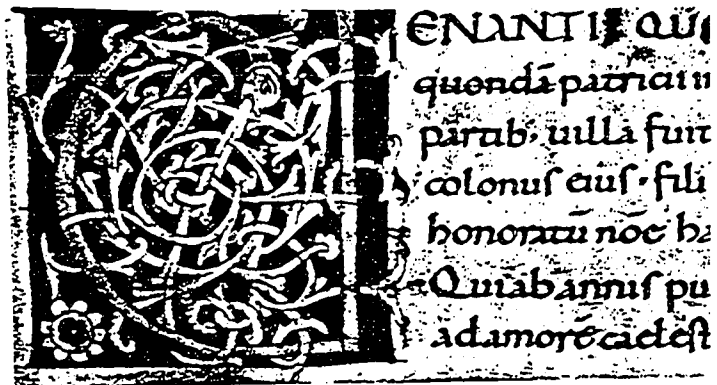 ENANTII QU
quondā patricii in
partib· uilla fuit
colonuſ eiuſ · fili
honoratū nōe ha
Quiab annıſ pu
ad amorē caeleſt